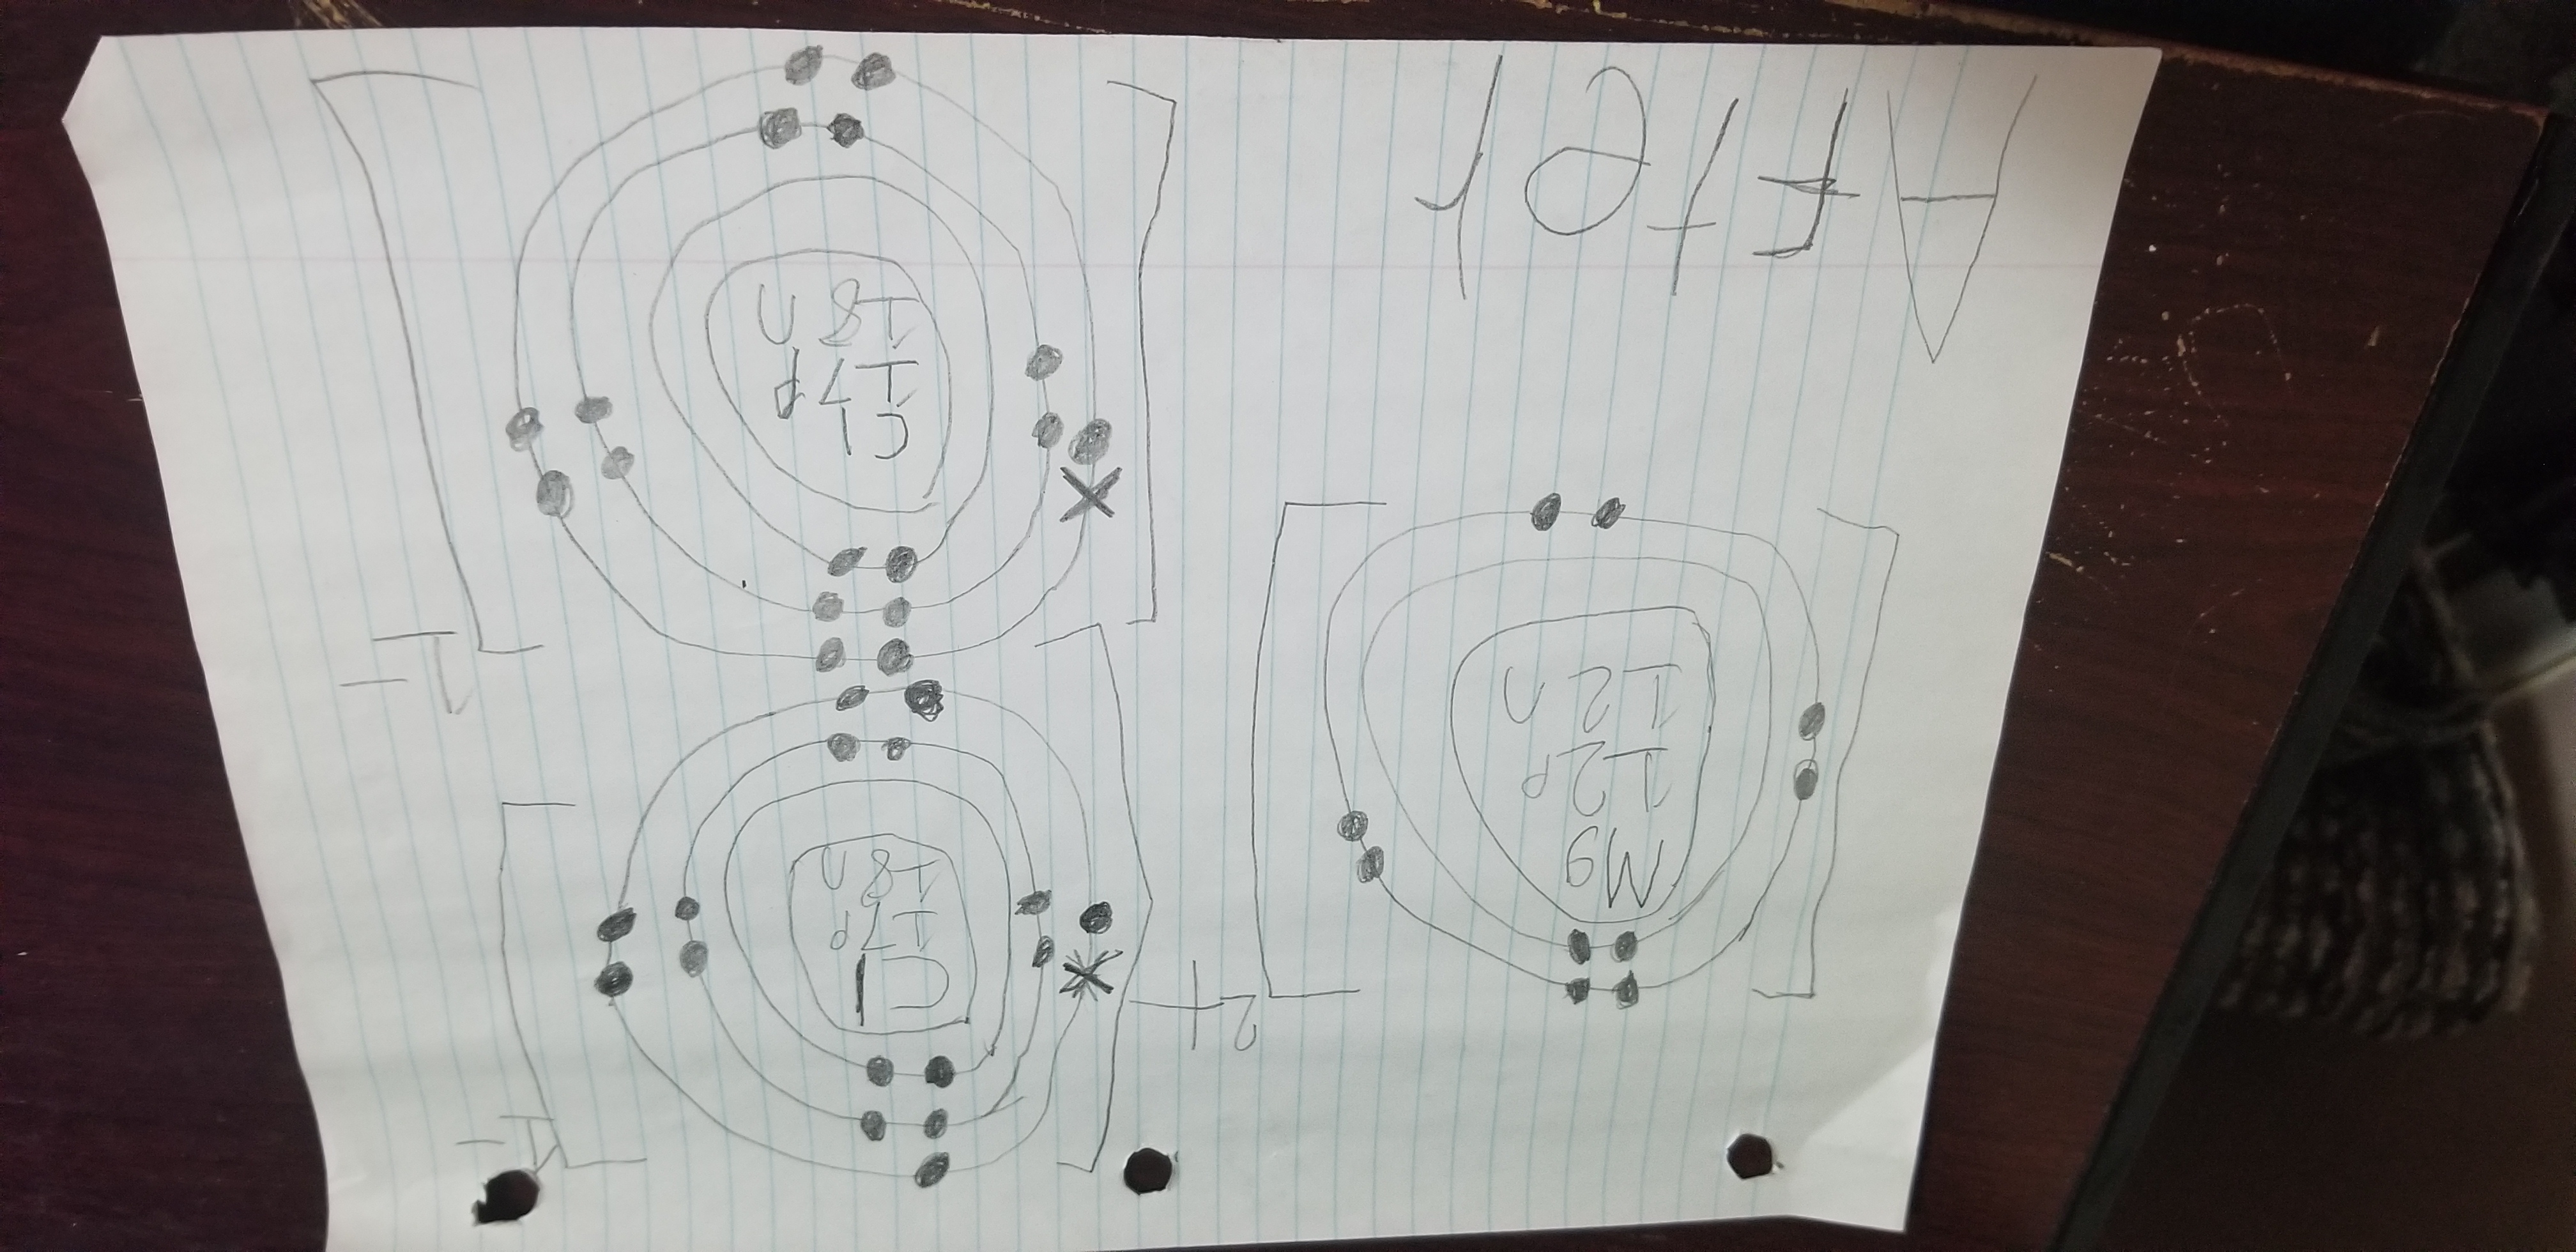 Mg
12p
12n
2+
Cl
17p
18n
1-
Cl
17p
18n
1-
After